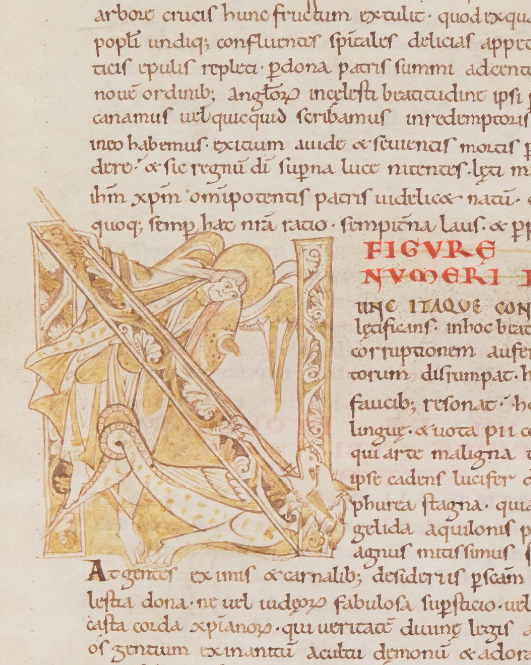 arbore crucis hunc fructum extulit · quod ex qu
popl̄i undiq; confluentes sp̄itales delicias appet
ticis epulis repleti · p̲dona patris summi ad cent
noue ordinib; angl̄oꝝ in cęlesti beatitudine ipsi
canamus uel quicquid scribamus in redemptoris
in eo habemus · exitium auide & seuientis mortis p
dere · & sic regnū dī sup̄na luce nitentes · lęti m
ihm̄ xp̄m omīpotentis patris uidelic& natū ·
quoq; semp̲ hac nr̄a ratio · sempit̄na laus · & p̲p
FIGVRĘ
NVMERI
NUNC ITAQUE CON
lętificans · in hoc bea
corruptionem aufer
torum disrumpat · h
faucib; resonat · ho
linguę · & uota pii c
qui arte maligna
ipse cadens lucifer
phurea stagna · quia
gelida aquilonis p
agnus mitissimus
At gentes ex imis & carnalib; desideriis p̲scam
lestia dona · ne uel iudęoꝝ fabulosa sup̲sticio · uel
casta corda xp̄ianoꝝ · qui ueritatē diuinę legis a
os gentium exinanitū acubtu demonū & ador